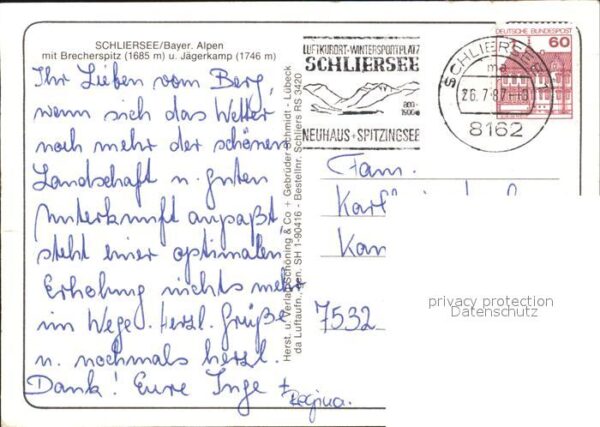 SCHLIERSEE/Bayer. Alpen
mit Brecherspitz (1685 m) u. Jägerkamp (1746 m)
Ihr Lieben vom Berg,
wenn sich das Wetter
noch mehr der schönen
Landschaft u. guten
Unterkunft anpaßt,
steht einer optimalen
Erholung nichts mehr
im Wege. Herzl. Grüße
u. nochmals herzl.
Dank! Eure Inge +
Regina.
Herst. u. Verlag Schöning & Co + Gebrüder Schmidt - Lübeck
SH 1-90416 - Bestellnr. Schliers RS 3420
LUFTKURORT-WINTERSPORTPLATZ
SCHLIERSEE
NEUHAUS + SPITZINGSEE
SCHLIERSEE
26.7.87
8162
DEUTSCHE BUNDESPOST
60
Fam.
7532
privacy protection
Datenschutz